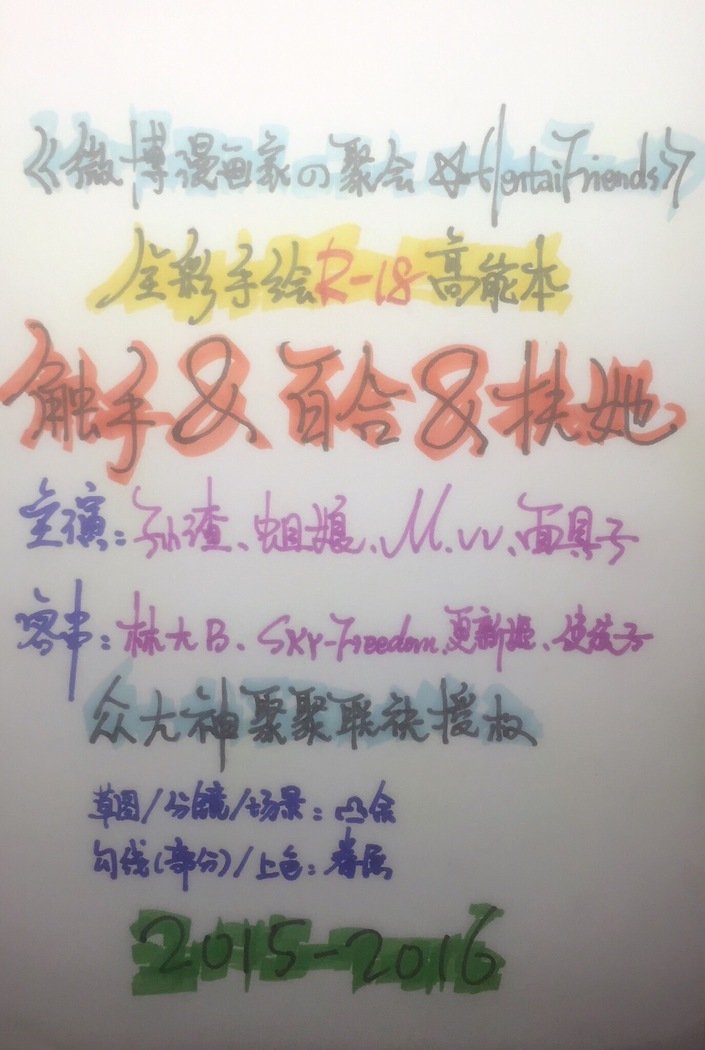 《微博漫画家の聚会☆HentaiFriends》
全彩手绘R-18高能本
触手&百合&扶她
主演:孙渣、蛆娘、M.W、面具子
客串:林大B、SKY-Freedom、更新姬、使徒子
众大神聚聚联袂授权
草图/分镜/场景:凸余
勾线(部分)/上色:
2015-2016